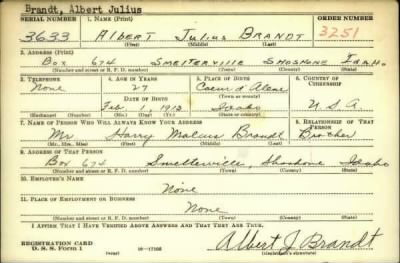 Brandt, Albert Julius
SERIAL NUMBER 1. NAME (Print) ORDER NUMBER
3633 ALBERT Julius BRANDT 3251
(First) (Middle) (Last)
2. ADDRESS (Print)
Box 674 SMELTERVILLE SHOSHONE IDAHO
(Number and street or R. F. D. number) (Town) (County) (State)
3. TELEPHONE 4. AGE IN YEARS 5. PLACE OF BIRTH 6. COUNTRY OF CITIZENSHIP
None 27 Coeur d'Alene
DATE OF BIRTH (Town or county)
Feb 1, 1913 Idaho U.S.A
(Exchange) (Number) (Mo.) (Day) (Yr.) (State or country)
7. NAME OF PERSON WHO WILL ALWAYS KNOW YOUR ADDRESS 8. RELATIONSHIP OF THAT PERSON
Mr Harry Brandt Brother
(Mr., Mrs., Miss) (First) (Middle) (Last)
9. ADDRESS OF THAT PERSON
Box 674 Smelterville, Shoshone Idaho
(Number and street or R. F. D. number) (Town) (County) (State)
10. EMPLOYER'S NAME
None
11. PLACE OF EMPLOYMENT OR BUSINESS
None
(Number and street or R. F. D. number) (Town) (County) (State)
I AFFIRM THAT I HAVE VERIFIED ABOVE ANSWERS AND THAT THEY ARE TRUE.
REGISTRATION CARD
D. S. S. Form 1 (over) 16-17105 Albert J Brandt
(Registrant's signature)